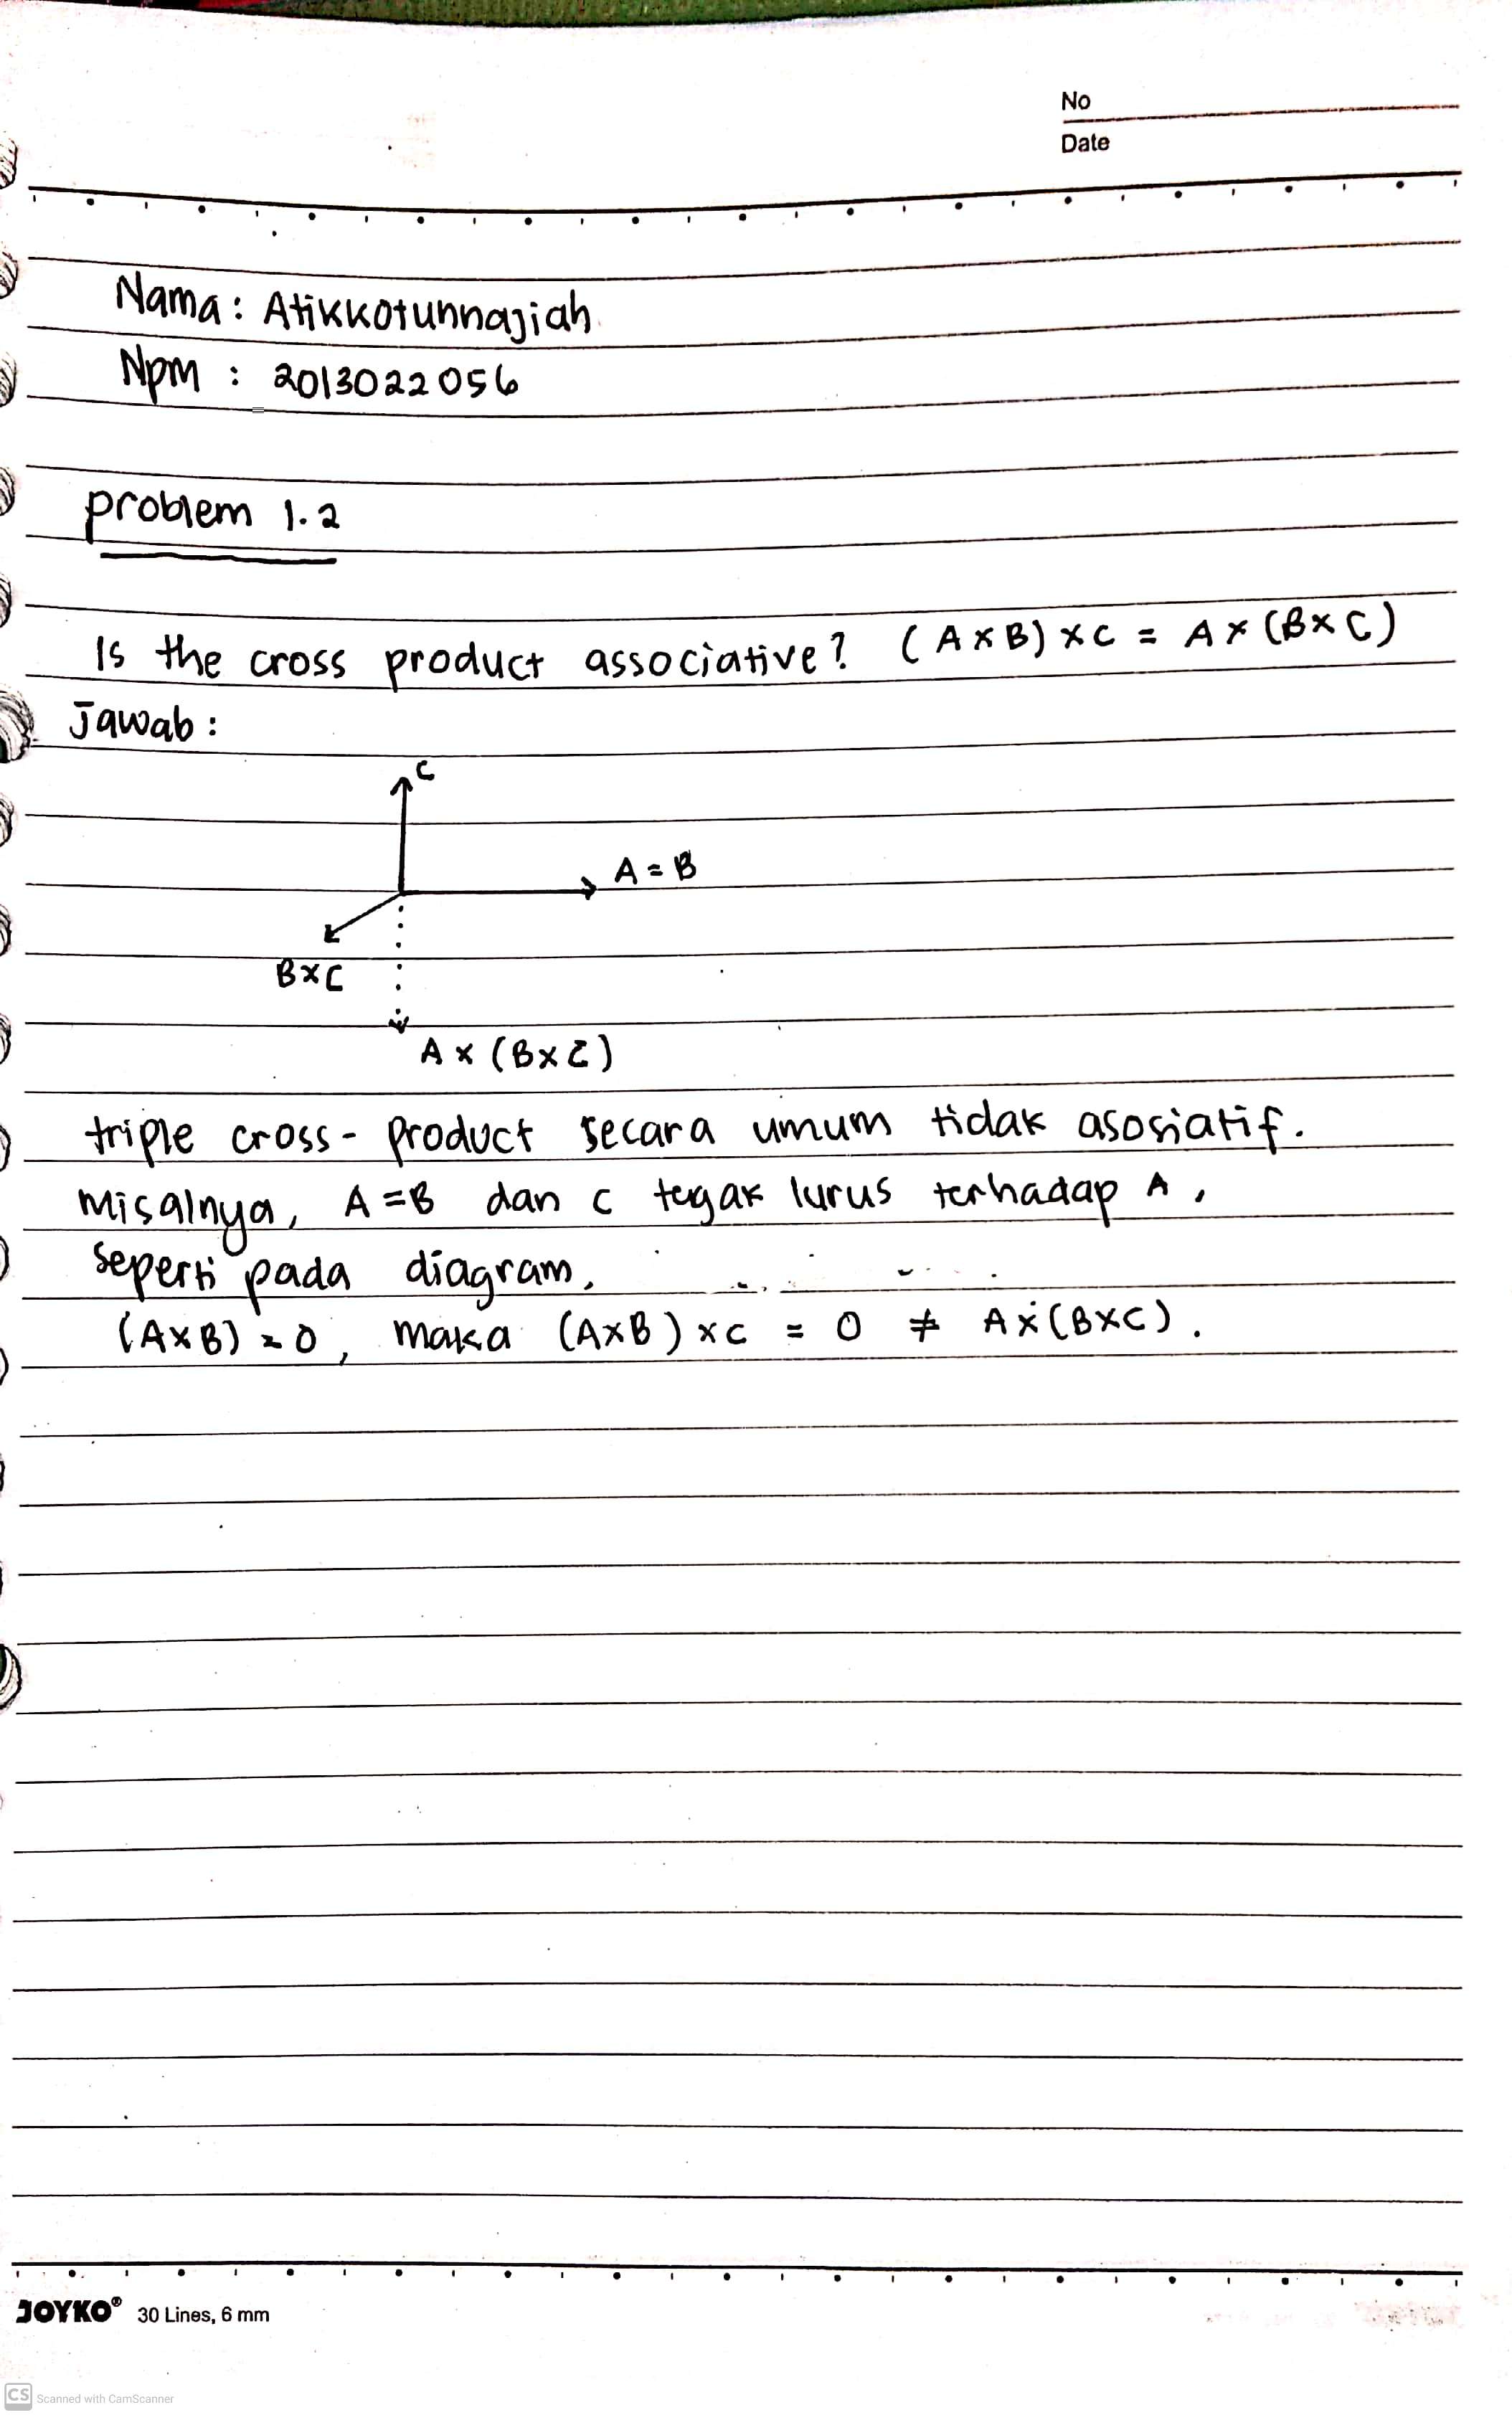 No
Date
Nama : Atikkotunnajiah
Npm : 2013022056
problem 1.2
Is the cross product associative? (A×B) ×C = A × (B×C)
Jawab :
C
A = B
B×C
A × (B×C)
triple cross-product secara umum tidak asosiatif.
Misalnya, A=B dan C tegak lurus terhadap A,
seperti pada diagram,
(A×B) = 0, maka (A×B) ×C = 0 ≠ A×(B×C).
JOYKO® 30 Lines, 6 mm
CS Scanned with CamScanner